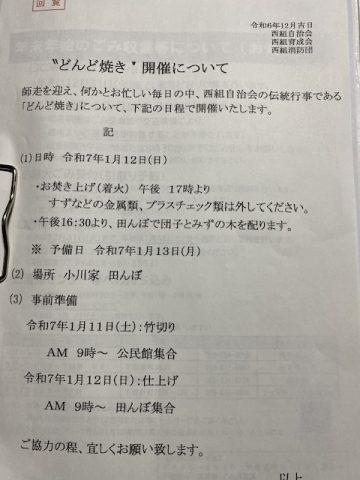 回覧
令和6年12月吉日
西組自治会
西組育成会
西組消防団
“どんど焼き”開催について
師走を迎え、何かとお忙しい毎日の中、西組自治会の伝統行事である
「どんど焼き」について、下記の日程で開催いたします。
記
(1)日時 令和7年1月12日(日)
・お焚き上げ(着火) 午後 17時より
すずなどの金属類、プラスチェック類は外してください。
・午後16:30より、田んぼで団子とみずの木を配ります。
※ 予備日 令和7年1月13日(月)
(2) 場所 小川家 田んぼ
(3) 事前準備
令和7年1月11日(土):竹切り
AM 9時~ 公民館集合
令和7年1月12日(日):仕上げ
AM 9時~ 田んぼ集合
ご協力の程、宜しくお願い致します。
以上